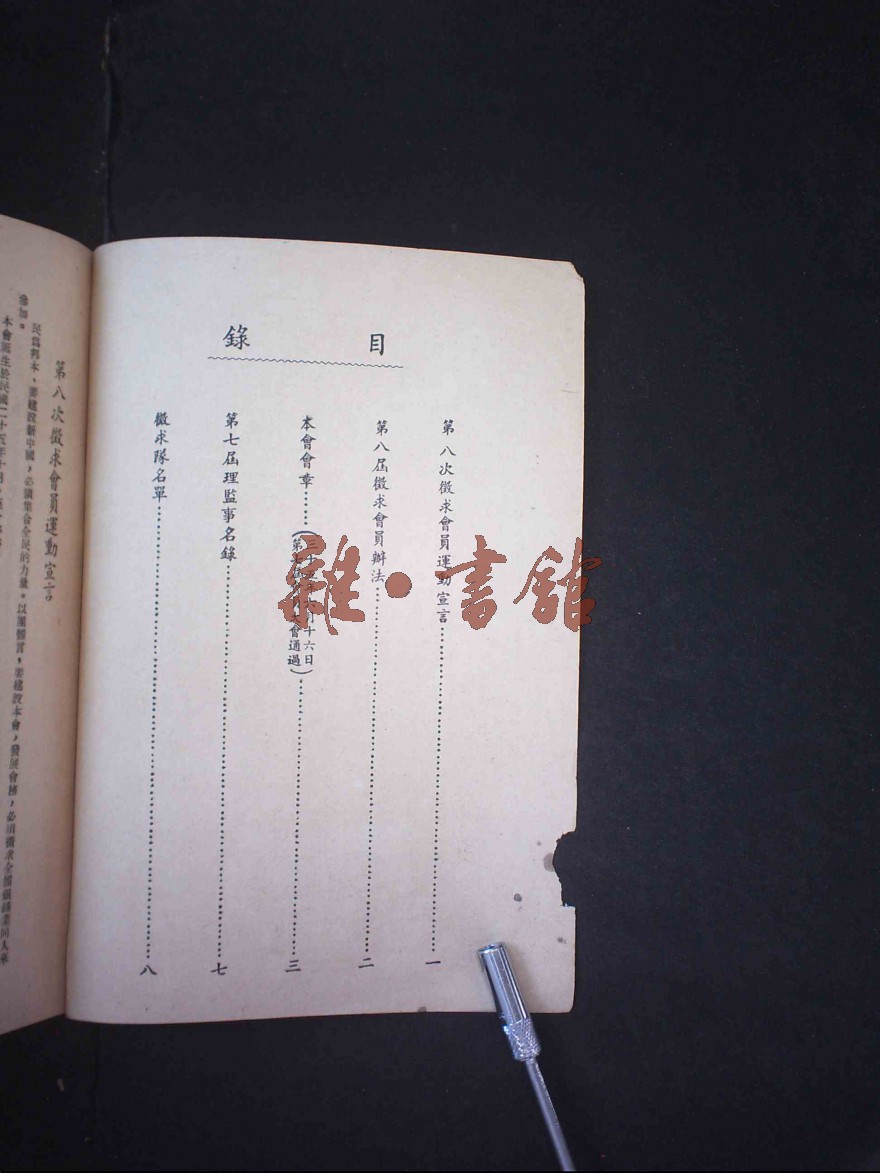 目錄
第八次徵求會員運動宣言 一
第八屆徵求會員辦法 二
本會會章 三
十六日
大會通過)
第七屆理監事名錄 七
徵求隊名單 八
雜·書館
第八次徵求會員運動宣言
民為邦本，要建設新中國，必須集合全民的力量。以團體言，要建設本會，發展會務，必須徵求全體銀錢業同人來
參加。
本會誕生於民國二十五年十月